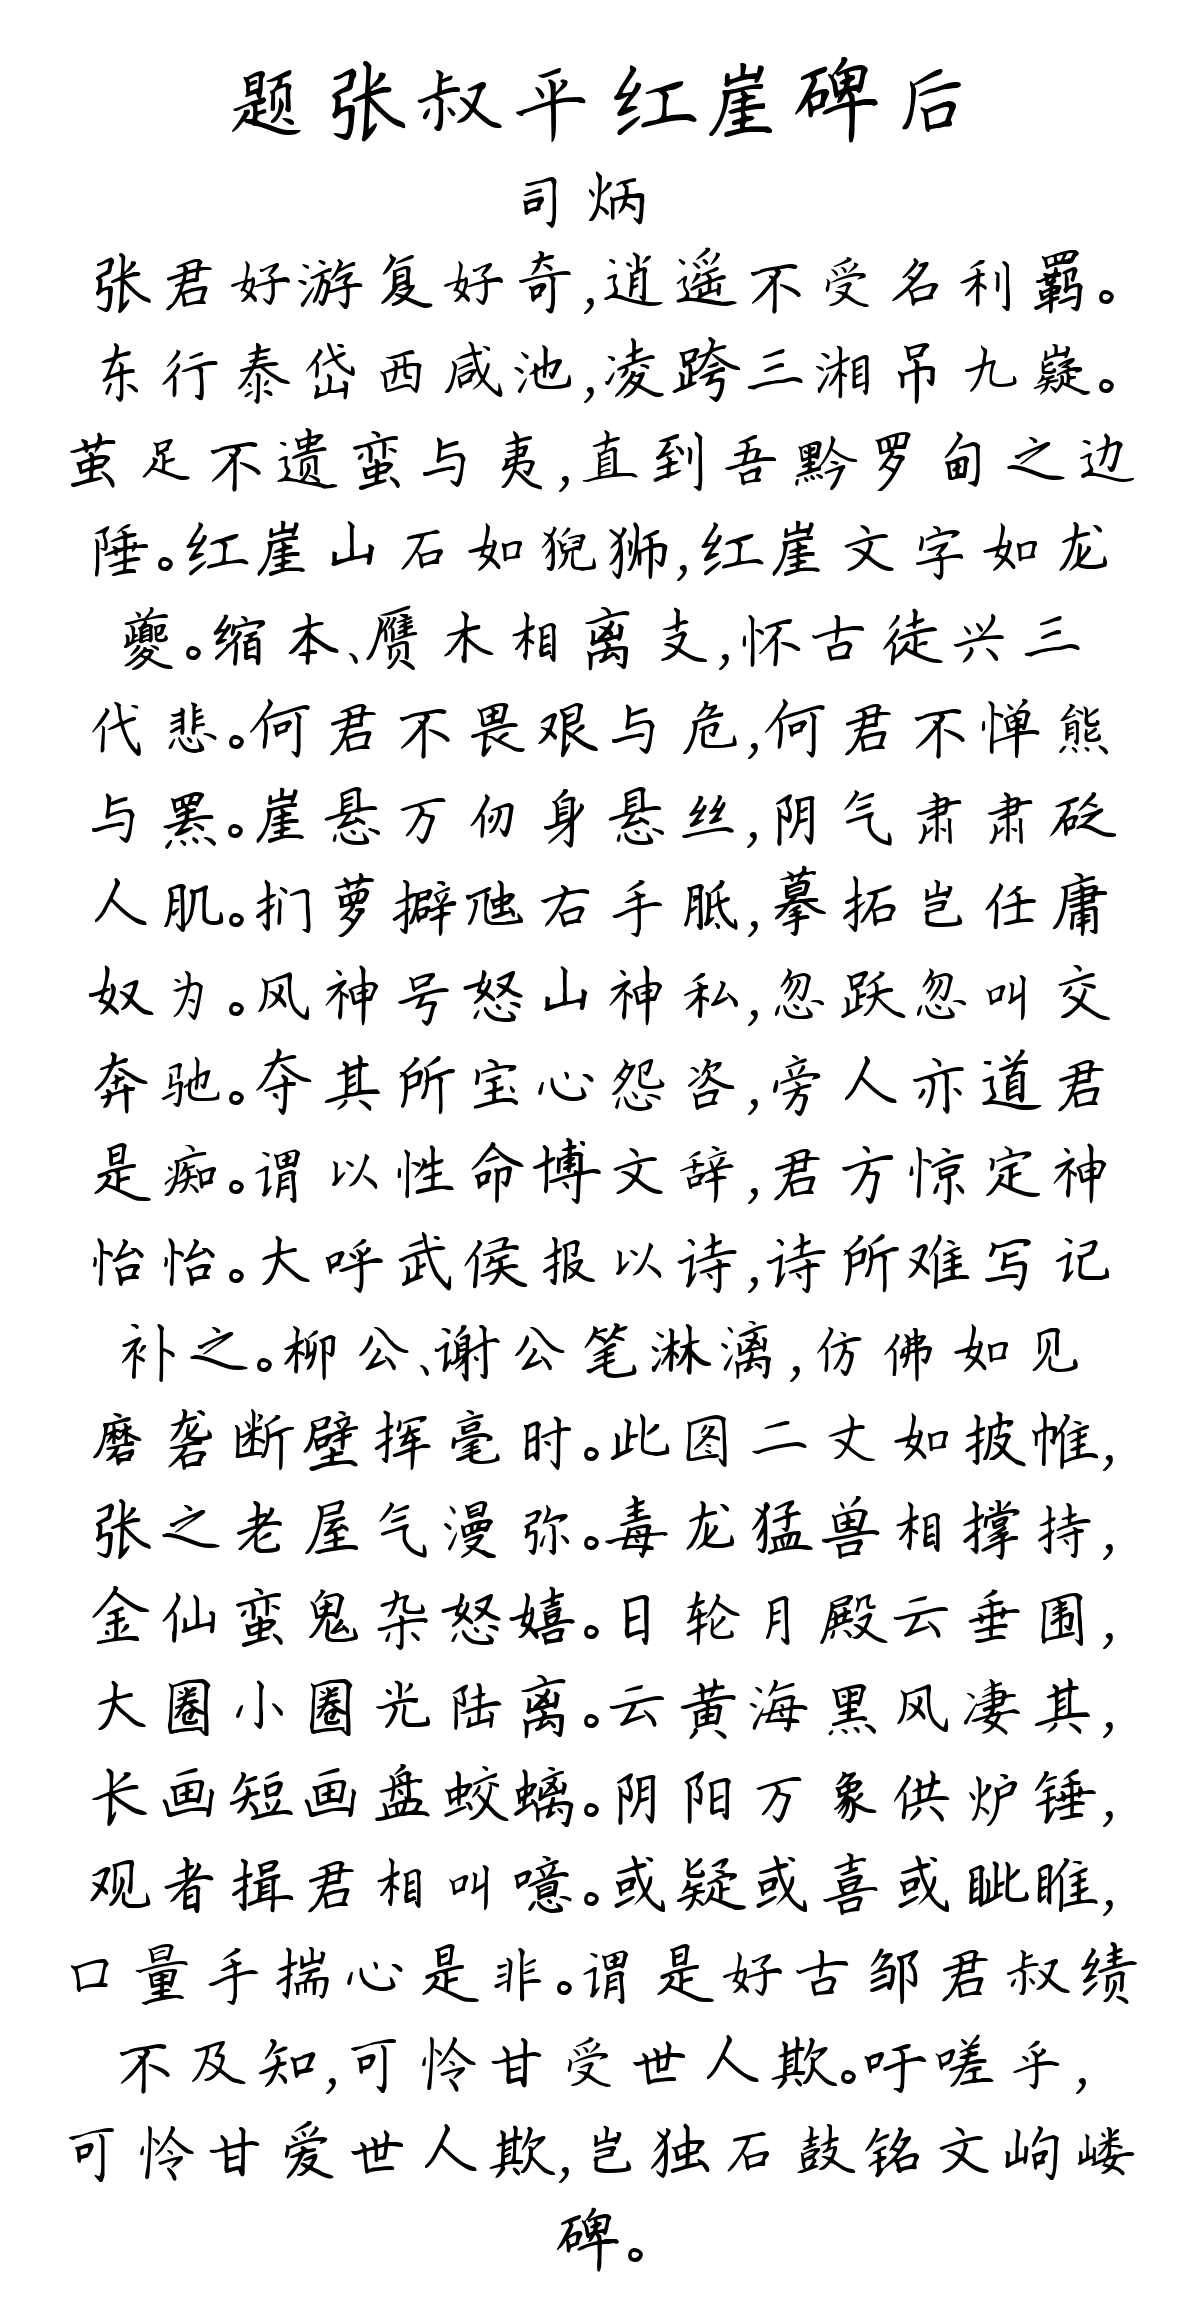 题张叔平红崖碑后
司炳
张君好游复好奇,逍遥不受名利羁。
东行泰岱西咸池,凌跨三湘吊九嶷。
茧足不遗蛮与夷,直到吾黔罗甸之边
陲。红崖山石如猊狮,红崖文字如龙
夔。缩本、赝木相离支,怀古徒兴三
代悲。何君不畏艰与危,何君不惮熊
与罴。崖悬万仞身悬丝,阴气肃肃砭
人肌。扪萝擗虺右手胝,摹拓岂任庸
奴为。风神号怒山神私,忽跃忽叫交
奔驰。夺其所宝心怨咨,旁人亦道君
是痴。谓以性命博文辞,君方惊定神
怡怡。大呼武侯报以诗,诗所难写记
补之。柳公、谢公笔淋漓,仿佛如见
磨砻断壁挥毫时。此图二丈如披帷,
张之老屋气漫弥。毒龙猛兽相撑持,
金仙蛮鬼杂怒嬉。日轮月殿云垂围,
大圈小圈光陆离。云黄海黑风凄其,
长画短画盘蛟螭。阴阳万象供炉锤,
观者揖君相叫噫。或疑或喜或眦睢,
口量手揣心是非。谓是好古邹君叔绩
不及知,可怜甘受世人欺。吁嗟乎,
可怜甘爱世人欺,岂独石鼓铭文岣嵝
碑。